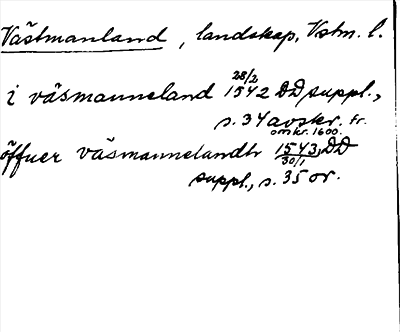 Västmanland, landskap, Vstm. l.
28/2
i väsmanneland 1542 DD suppl.,
s. 34 avskr. fr.
omkr. 1600.
öffuer väsmannelandh 1543, DD
30/1
suppl., s. 35 or.